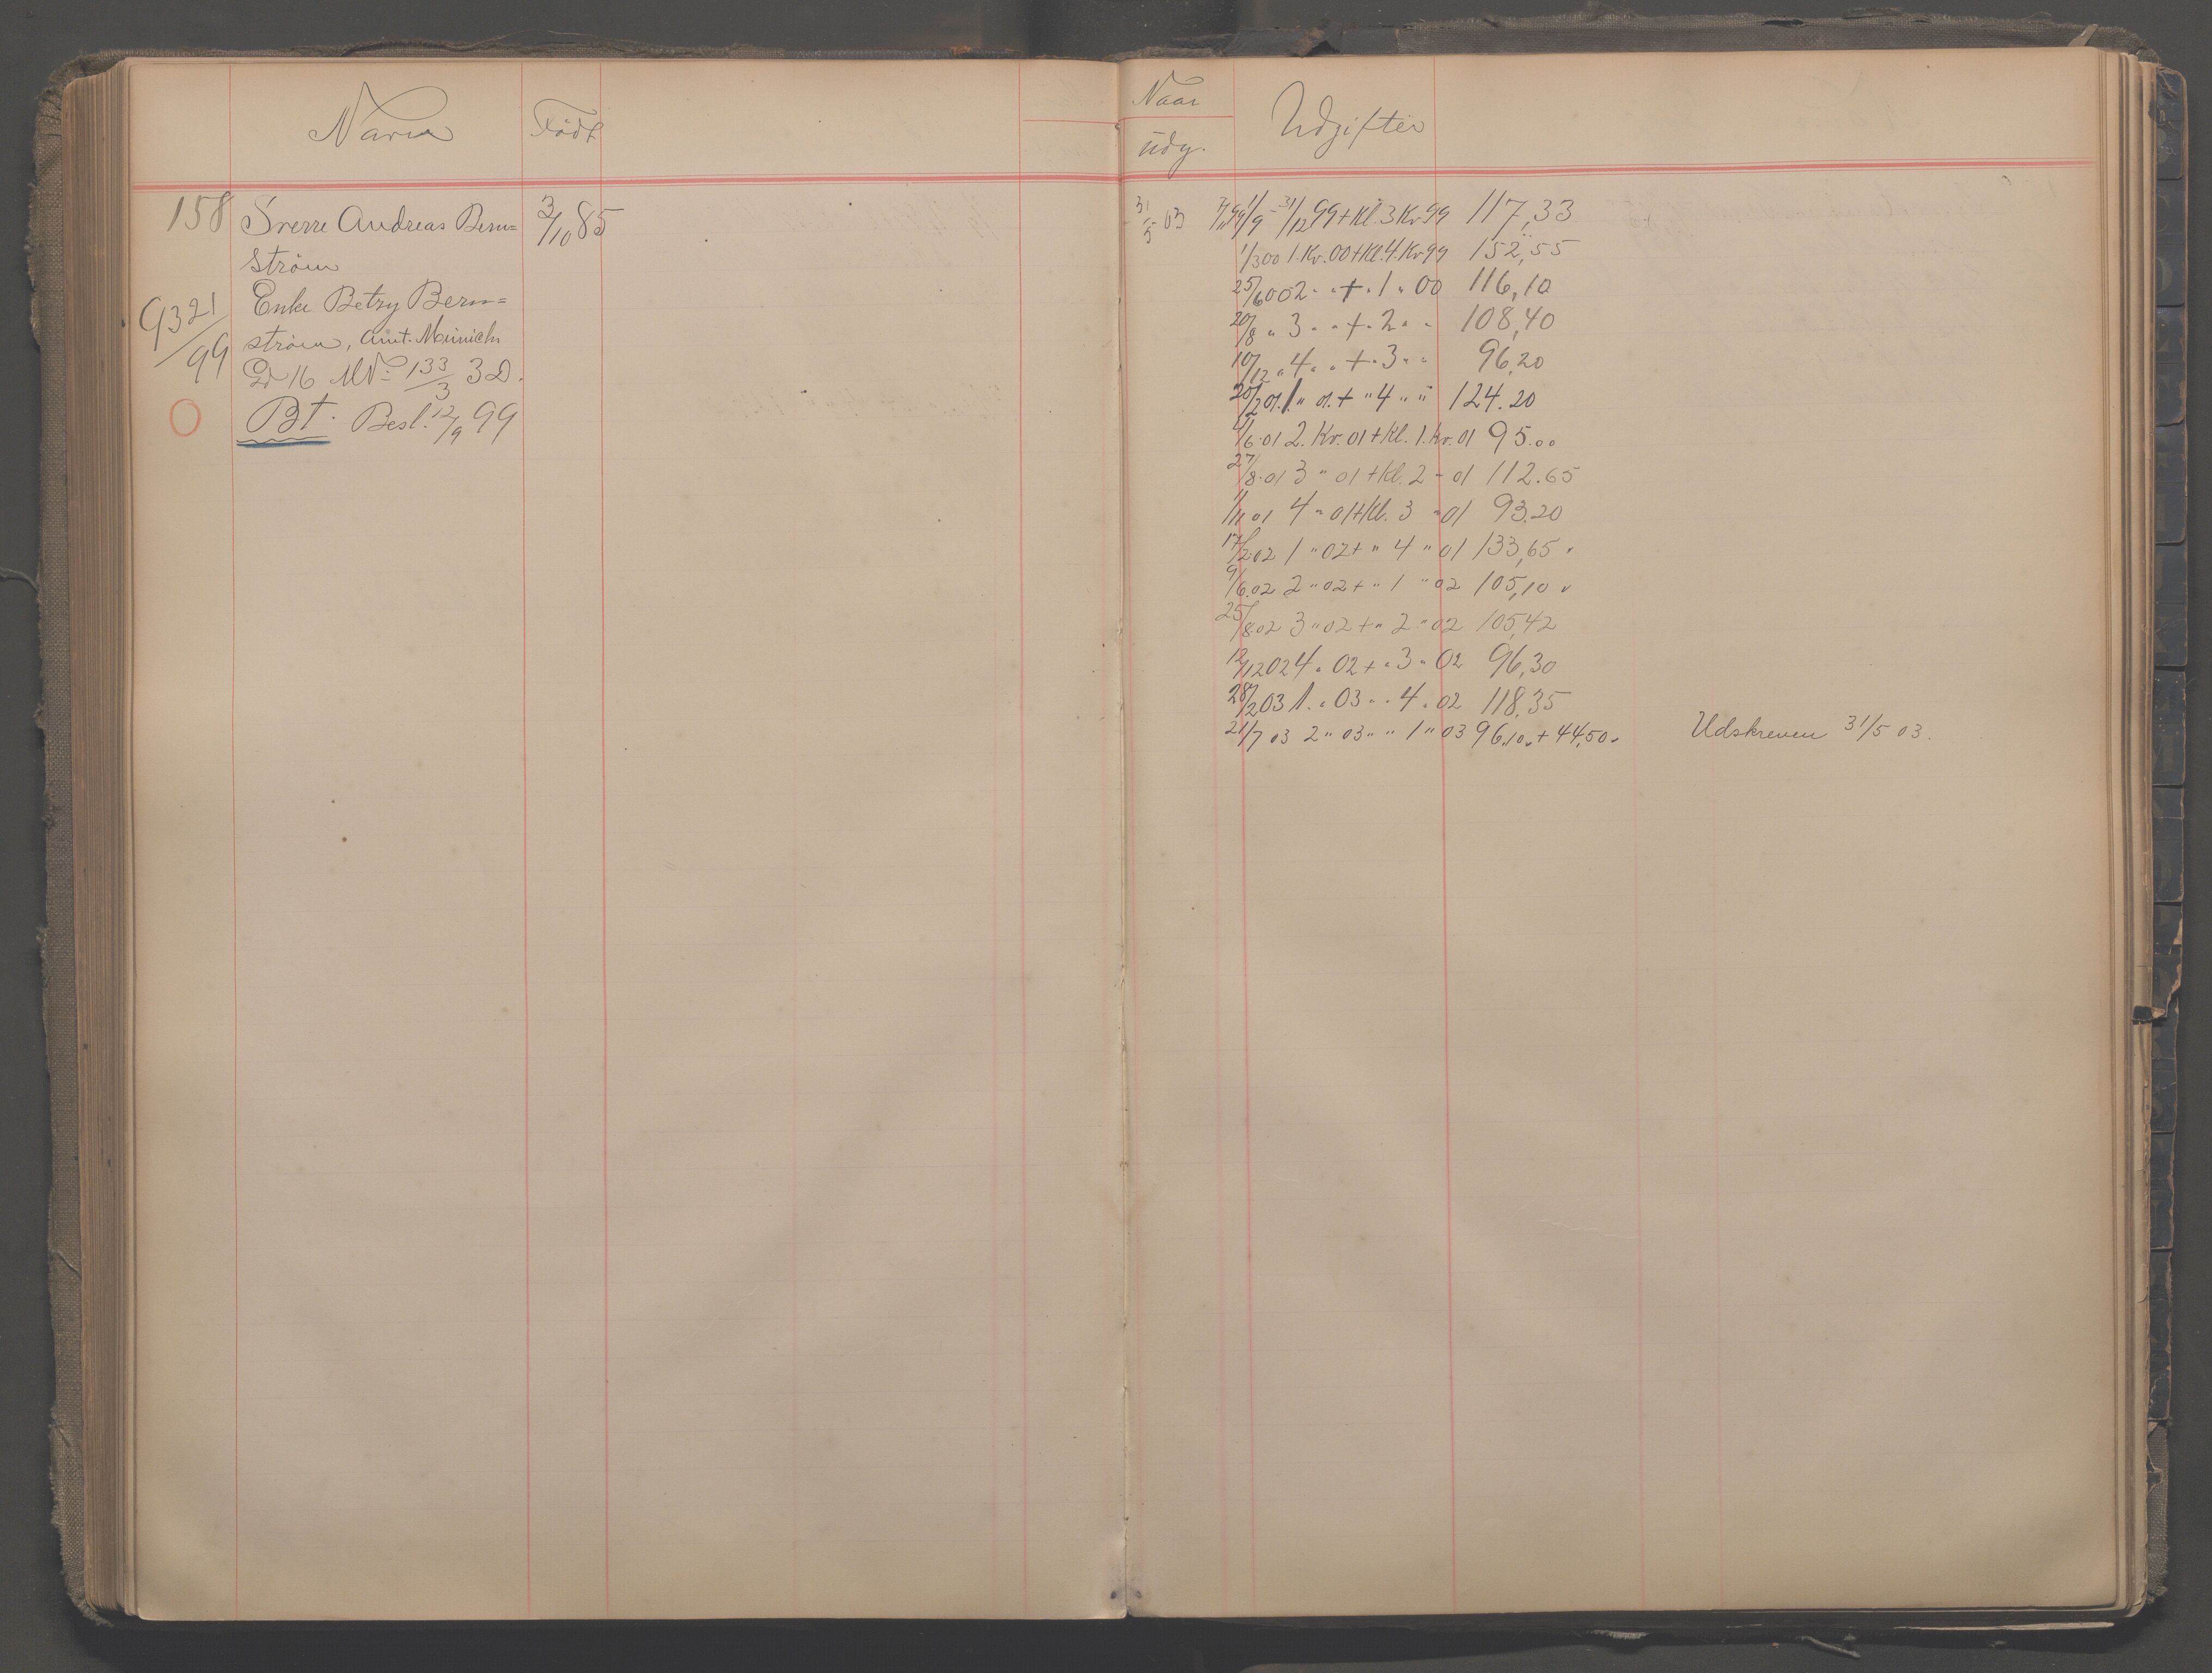 Navn
Født
158
Sverre Andreas Bern=
strøm
3/10 85
9321/99
Enke Betzy Bern=
strøm, Amt. Meinichs
Gd 16 MN: 133/3 3D.
Bt. Besl. 12/9 99
Naar
udg.
Udgifter
31/5 03
7/11 99 1/9 - 31/12 99 + Kl. 3 Kv 99 117,33
1/3 00 1. Kv. 00 + Kl. 4. Kv 99 152,55
25/6 00 2 " " + " 1 " 00 116,10
20/8 " 3 " " + " 2 " " 108,40
10/12 " 4 " " + " 3 " " 96,20
20/2 01. 1. " 01. + " 4 " " 124.20
4/6.01 2. Kv. 01 + Kl. 1. Kv. 01 95.00
27/8.01 3 " 01 + Kl. 2 - 01 112.65
1/11 01 4 " 01 + Kl. 3 " 01 93.20
17/2 02 1 " 02 + " 4 " 01 133,65 "
9/6.02 2 " 02 + " 1 " 02 105,10 "
25/8 02 3 " 02 + " 2 " 02 105,42
12/12 02 4 " 02 + " 3 " 02 96,30
28/2 03 1. " 03 " " 4 " 02 118,35
21/7 03 2 " 03 " " 1 " 03 96,10 + 44,50
Udskreven 31/5 03.